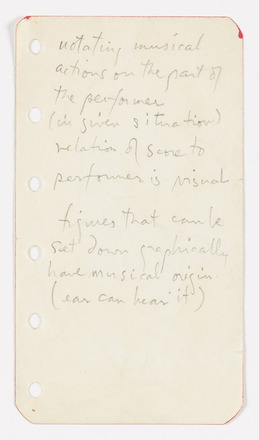 notating musical
actions on the part of
the performer
(in given situation)
relation of score to
performer is visual
figures that can be
set down graphically
have musical origin.
(ear can hear it)